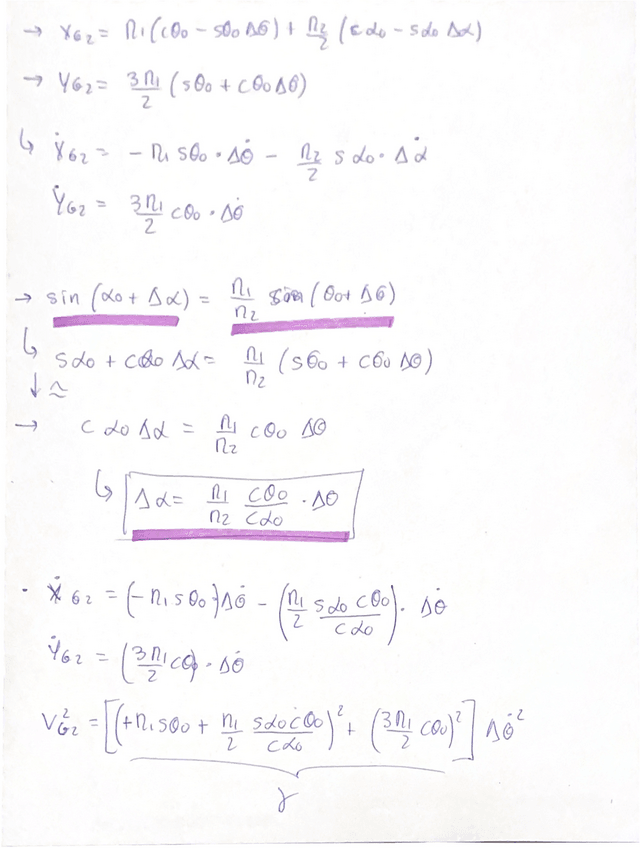 → XG2 = r1 (cθ0 - sθ0 Δθ) + r2/2 (cα0 - sα0 Δα)
→ YG2 = 3r1/2 (sθ0 + cθ0 Δθ)
↳ ẊG2 = - r1 sθ0 · Δθ̇ - r2/2 sα0 · Δα̇
ẎG2 = 3r1/2 cθ0 · Δθ̇
→ sin (α0 + Δα) = r1/r2 sin (θ0 + Δθ)
↳ sα0 + cα0 Δα = r1/r2 (sθ0 + cθ0 Δθ)
↓ ≈
→ cα0 Δα = r1/r2 cθ0 Δθ
↳ Δα = r1/r2 cθ0/cα0 · Δθ
· ẊG2 = (- r1 sθ0) Δθ̇ - (r1/2 sα0 cθ0/cα0) · Δθ̇
ẎG2 = (3r1/2 cθ) · Δθ̇
VG2² = [(+r1 sθ0 + r1/2 sα0 cθ0/cα0)² + (3r1/2 cθ0)²] Δθ̇²
γ